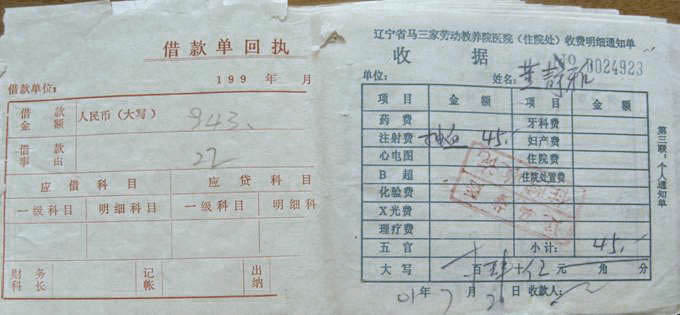 借款单回执
199 年 月
借款单位:
借款金额 人民币(大写) 943.
借款事由 22
应借科目 应贷科目
一级科目 明细科目 一级科目 明细科
财务科长 记帐 出纳
辽宁省马三家劳动教养院医院(住院处)收费明细通知单
收 据 NO 0024923
单位: 姓名:
项目 金额 项目 金额
药费 牙科费
注射费 45.- 妇产费
心电图 住院费
B超 住院处置费
化验费
X光费
理疗费
五官 小计: 45.-
大写 百 肆十伍元 角 分
01年 7月 日 收款人:
第三联:个人通知单